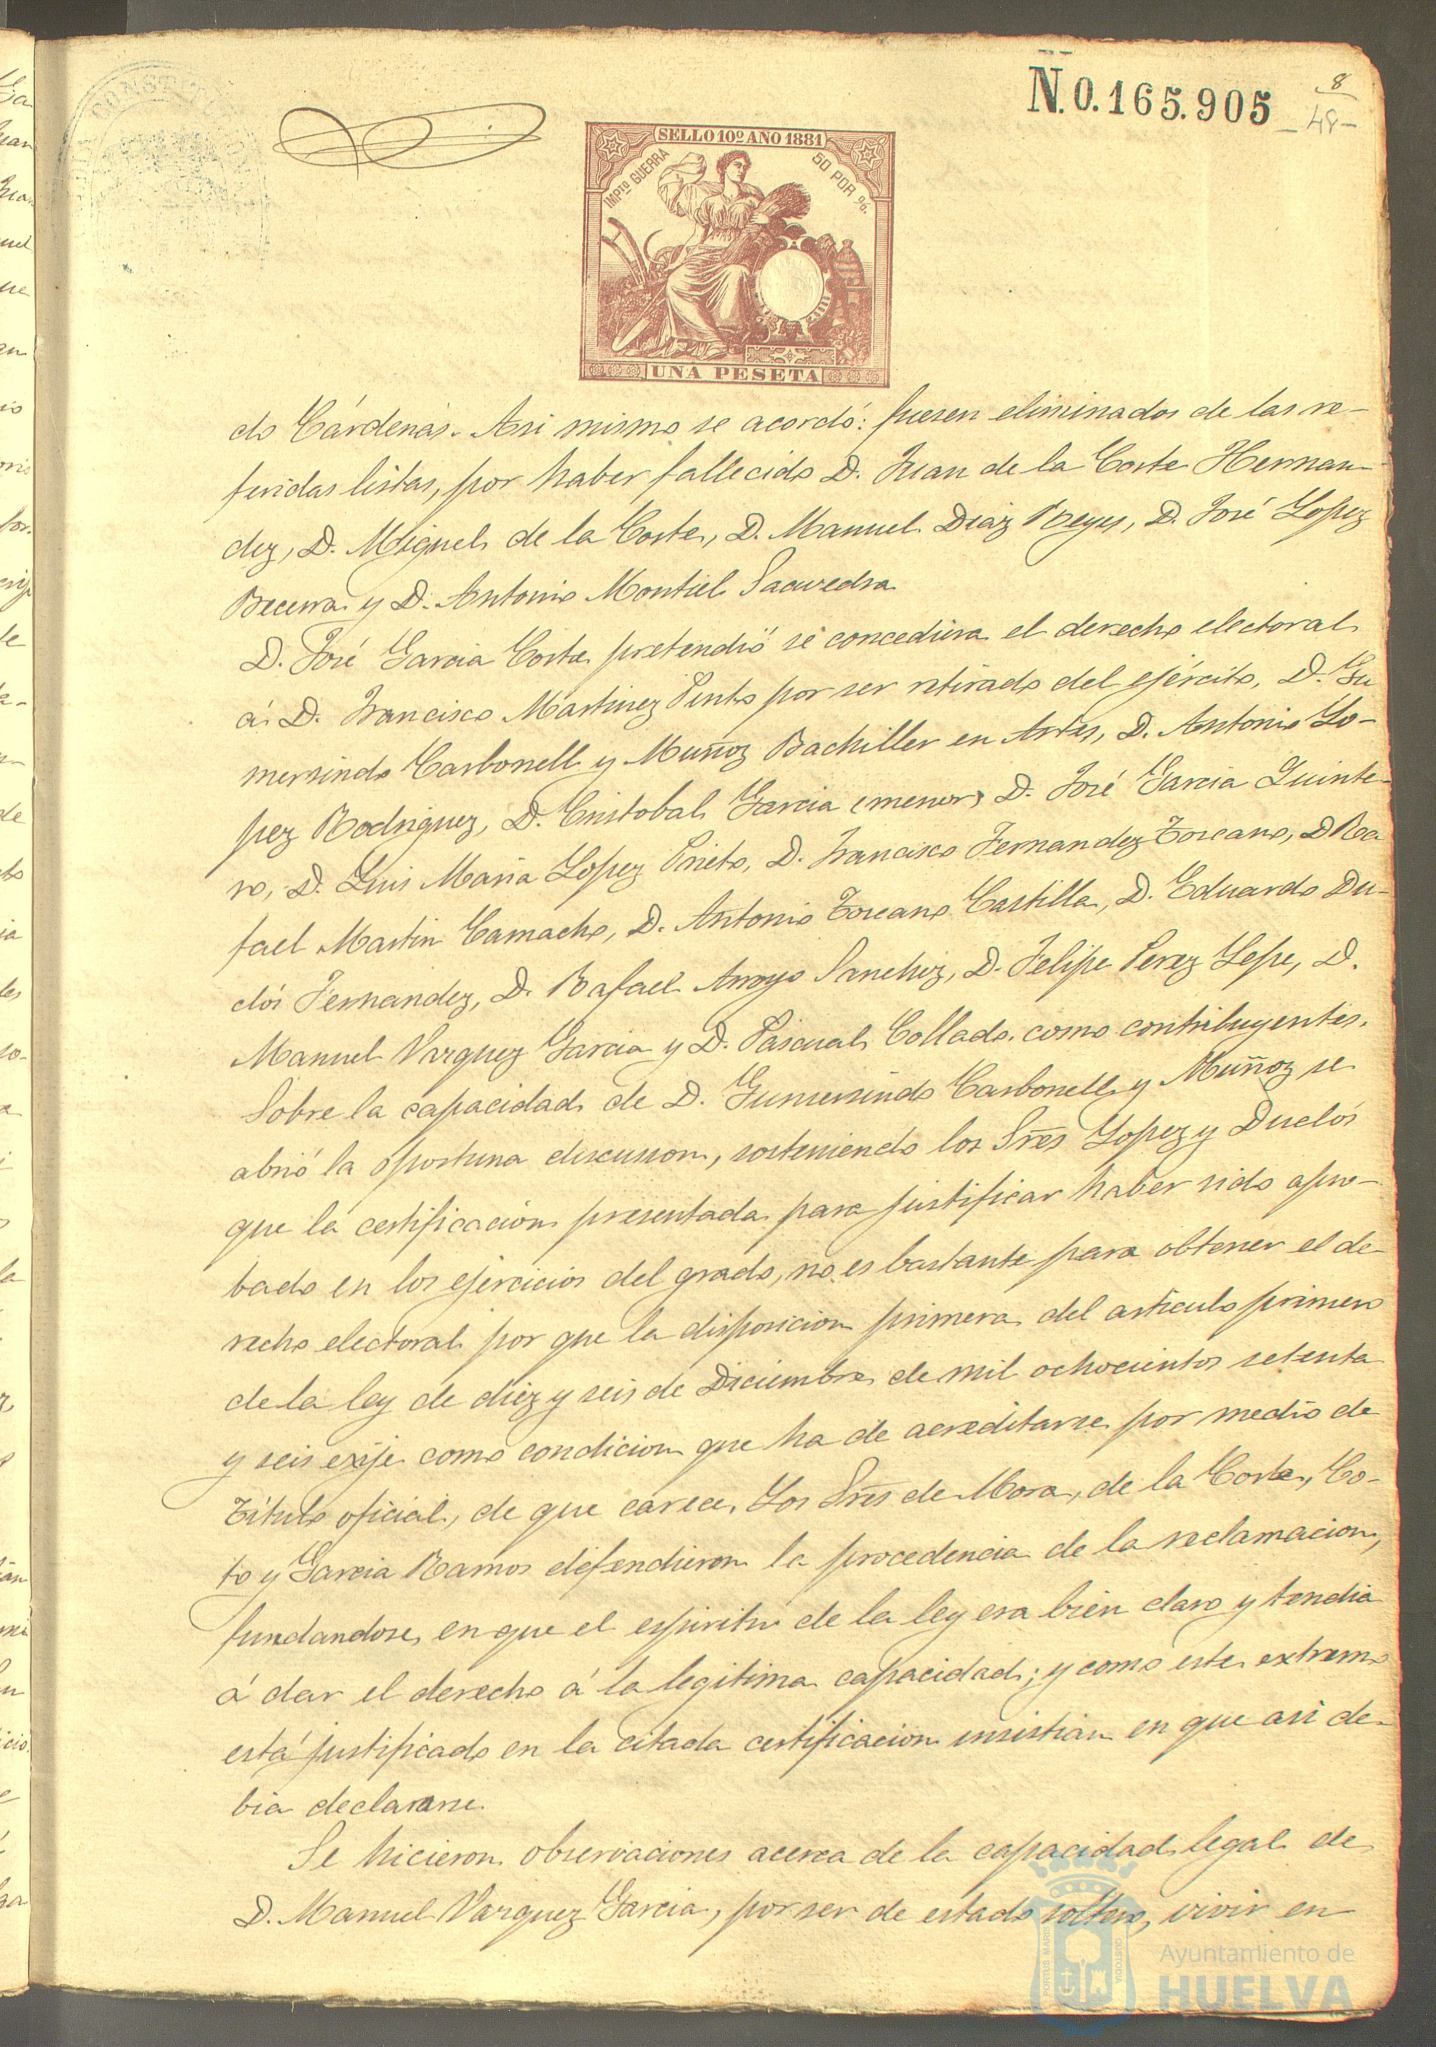 N.0.165.905
8
48
SELLO 10º AÑO 1881
IMPTO GUERRA
50 POR %.
UNA PESETA
do Cárdenas. Asi mismo se acordó: fuesen eliminados de las re-
feridas listas, por haber fallecido D. Juan de la Corte Hernan-
dez, D. Miguel de la Corte, D. Manuel Diaz Reyes, D. José Lopez
Becerra y D. Antonio Montiel Saavedra
D. José Garcia Corte pretendió se concediera el derecho electoral
á D. Francisco Martinez Pinto por ser retirado del ejército, D. Gu
mersindo Carbonell y Muñoz Bachiller en Artes, D. Antonio Lo-
pez Rodriguez, D. Cristobal Garcia (menor) D. José Garcia Quinte-
ro, D. Luis Maria Lopez Prieto, D. Francisco Fernandez Toscano, D Ra
fael Martin Camacho, D. Antonio Toscano Castilla, D. Eduardo Du-
clós Fernandez, D. Rafael Arroyo Sanchez, D. Felipe Perez Lepe, D.
Manuel Vazquez Garcia y D. Pascual Collado, como contribuyentes.
Sobre la capacidad de D. Gumersindo Carbonell y Muñoz se
abrió la oportuna discusion, sosteniendo los Sres Lopez y Duclós
que la certificacion presentada para justificar haber sido apro-
bado en los ejercicios del grado, no es bastante para obtener el de-
recho electoral por que la disposicion primera del articulo primero
de la ley de diez y seis de Diciembre de mil ochocientos setenta
y seis exije como condicion que ha de acreditarse por medio de
título oficial, de que carece. Los Sres de Mora, de la Corte, Co-
to y Garcia Ramos defendieron la procedencia de la reclamacion,
fundandose, en que el espiritu de la ley era bien claro y tendia
á dar el derecho á la legitima capacidad; y como este extremo
está justificado en la citada certificacion insistian en que asi de-
bia declararse.
Se hicieron observaciones acerca de la capacidad legal de
D. Manuel Vazquez Garcia, por ser de estado soltero, vivir en
Ayuntamiento de
HUELVA